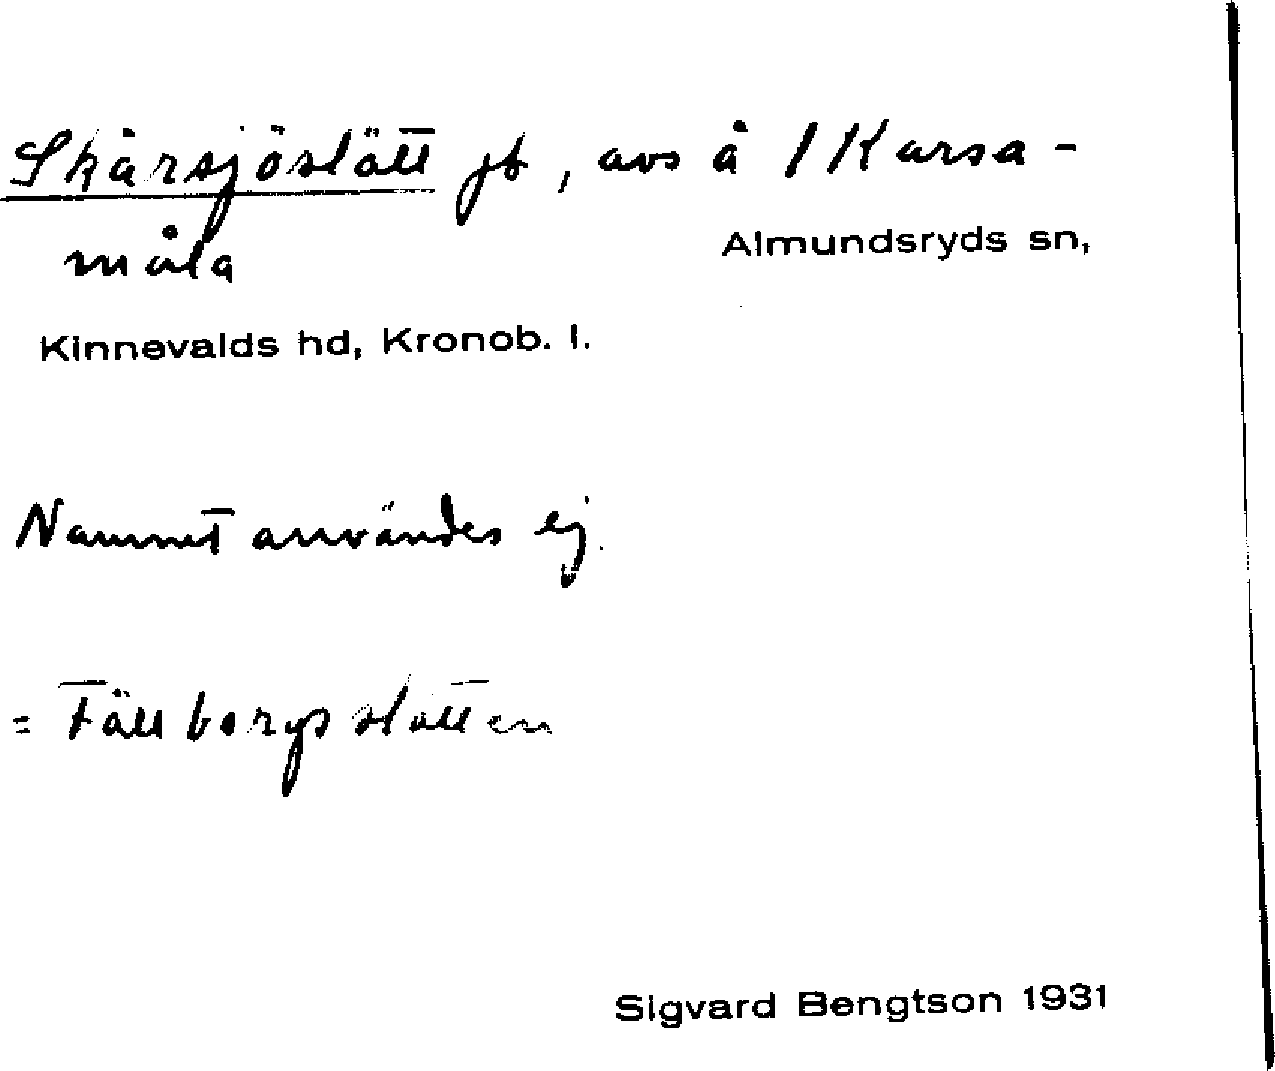 Skärsjöslätt jb, avs å 1 Karsa-
måla
Almundsryds sn,
Kinnevalds hd, Kronob. l.
Namnet användes ej.
= Fällborgslätten
Sigvard Bengtson 1931